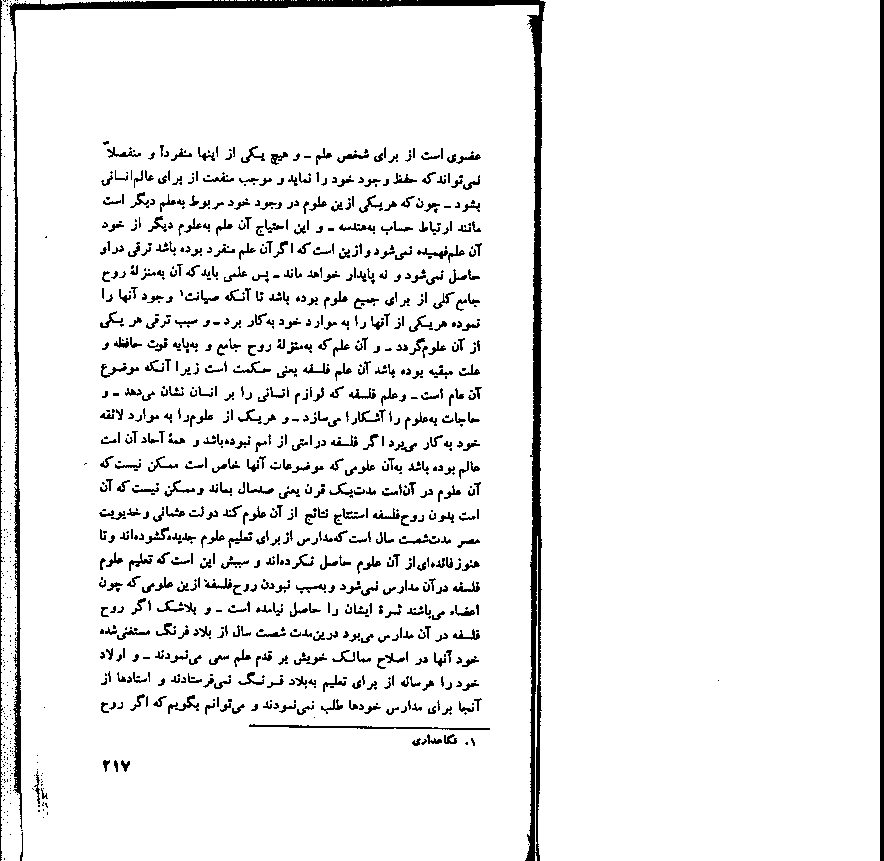 عضوی است از برای شخص علم ــ و هیچ یکی از اینها منفرداً و منفصلاً
نمی‌تواند که حفظ وجود خود را نماید و موجب منفعت از برای عالم انسانی
بشود ــ چون که هریکی ازین علوم در وجود خود مربوط به‌علم دیگر است
مانند ارتباط حساب به‌هندسه ــ و این احتیاج آن علم به‌علوم دیگر از خود
آن علم‌فهمیده نمی‌شود و ازین است که اگر آن علم منفرد بوده باشد ترقی در او
حاصل نمی‌شود و نه پایدار خواهد ماند ــ پس علمی باید که آن به‌منزلهٔ روح
جامع کلی از برای جمیع علوم بوده باشد تا آنکه صیانت۱ وجود آنها را
نموده هریکی از آنها را به موارد خود به‌کار برد ــ و سبب ترقی هر یکی
از آن علوم گردد ــ و آن علم که به‌منزلهٔ روح جامع و به‌پایه قوت حافظه و
علت مبقیه بوده باشد آن علم فلسفه یعنی حکمت است زیرا آنکه موضوع
آن عام است ــ و علم فلسفه که لوازم انسانی را بر انسان نشان می‌دهد ــ و
حاجات به‌علوم را آشکارا می‌سازد ــ و هریک از علوم را به موارد لائقه
خود به کار می‌برد اگر فلسفه در امتی از امم نبوده‌باشد و همهٔ آحاد آن امت
عالم بوده باشد به‌آن علومی که موضوعات آنها خاص است ممکن نیست که
آن علوم در آن‌امت مدت‌یک قرن یعنی صدسال بماند و ممکن نیست که آن
امت بدون روح‌فلسفه استنتاج نتائج از آن علوم کند دولت عثمانی و خدیویت
مصر مدت‌شصت سال است که‌مدارس از برای تعلیم علوم جدیده‌گشوده‌اند و تا
هنوز فائده‌ای از آن علوم حاصل نکرده‌اند و سببش این است که تعلیم علوم
فلسفه در آن مدارس نمی‌شود و به‌سبب نبودن روح‌فلسفهٔ ازین علومی که چون
اعضاء می‌باشند ثمرهٔ ایشان را حاصل نیامده است ــ و بلاشک اگر روح
فلسفه در آن مدارس می‌بود درین‌مدت شصت سال از بلاد فرنگ مستغنی‌شده
خود آنها در اصلاح ممالک خویش بر قدم علم سعی می‌نمودند ــ و اولاد
خود را هرساله از برای تعلیم به‌بلاد فرنگ نمی‌فرستادند و استادها از
آنجا برای مدارس خودها طلب نمی‌نمودند و می‌توانم بگویم که اگر روح
۱. نگاهداری
۲۱۷